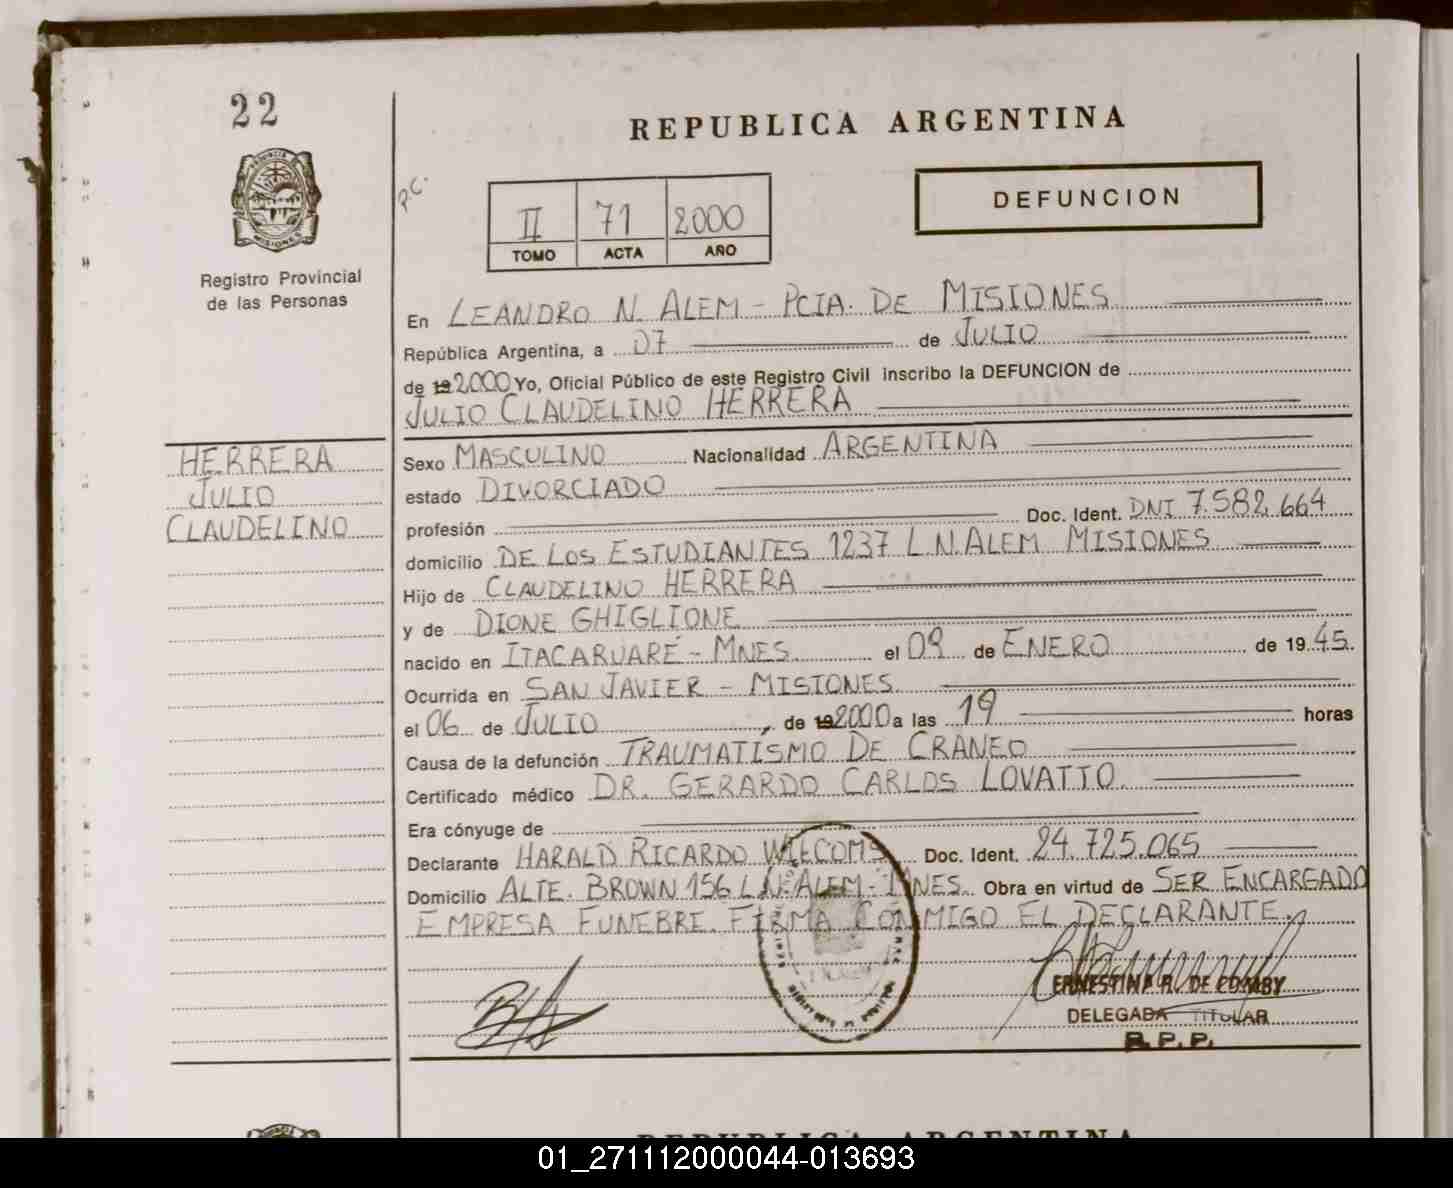 22
REPUBLICA ARGENTINA
P.C.
DEFUNCION
II 71 2000
TOMO ACTA AÑO
PROVINCIA DE MISIONES
Registro Provincial
de las Personas
En LEANDRO N. ALEM - PCIA. DE MISIONES
República Argentina, a 07 de JULIO
de 192000 Yo, Oficial Público de este Registro Civil inscribo la DEFUNCION de
JULIO CLAUDELINO HERRERA
HERRERA
JULIO
CLAUDELINO
Sexo MASCULINO Nacionalidad ARGENTINA
estado DIVORCIADO
profesión Doc. Ident. DNI 7.582.664
domicilio DE LOS ESTUDIANTES 1237 L.N.ALEM MISIONES
Hijo de CLAUDELINO HERRERA
y de DIONE GHIGLIONE
nacido en ITACARUARÉ - MNES. el 09 de ENERO de 1945.
Ocurrida en SAN JAVIER - MISIONES
el 06 de JULIO, de 192000 a las 19 horas
Causa de la defunción TRAUMATISMO DE CRANEO
Certificado médico DR. GERARDO CARLOS LOVATTO.
Era cónyuge de
Declarante HARALD RICARDO Doc. Ident. 24.725.065
Domicilio ALTE. BROWN 156 L.N. ALEM - MNES. Obra en virtud de SER ENCARGADO
EMPRESA FUNEBRE. FIRMA CONMIGO EL DECLARANTE.
ERNESTINA R. DE
DELEGADA TITULAR
R.P.P.
REPUBLICA ARGENTINA
01_271112000044-013693